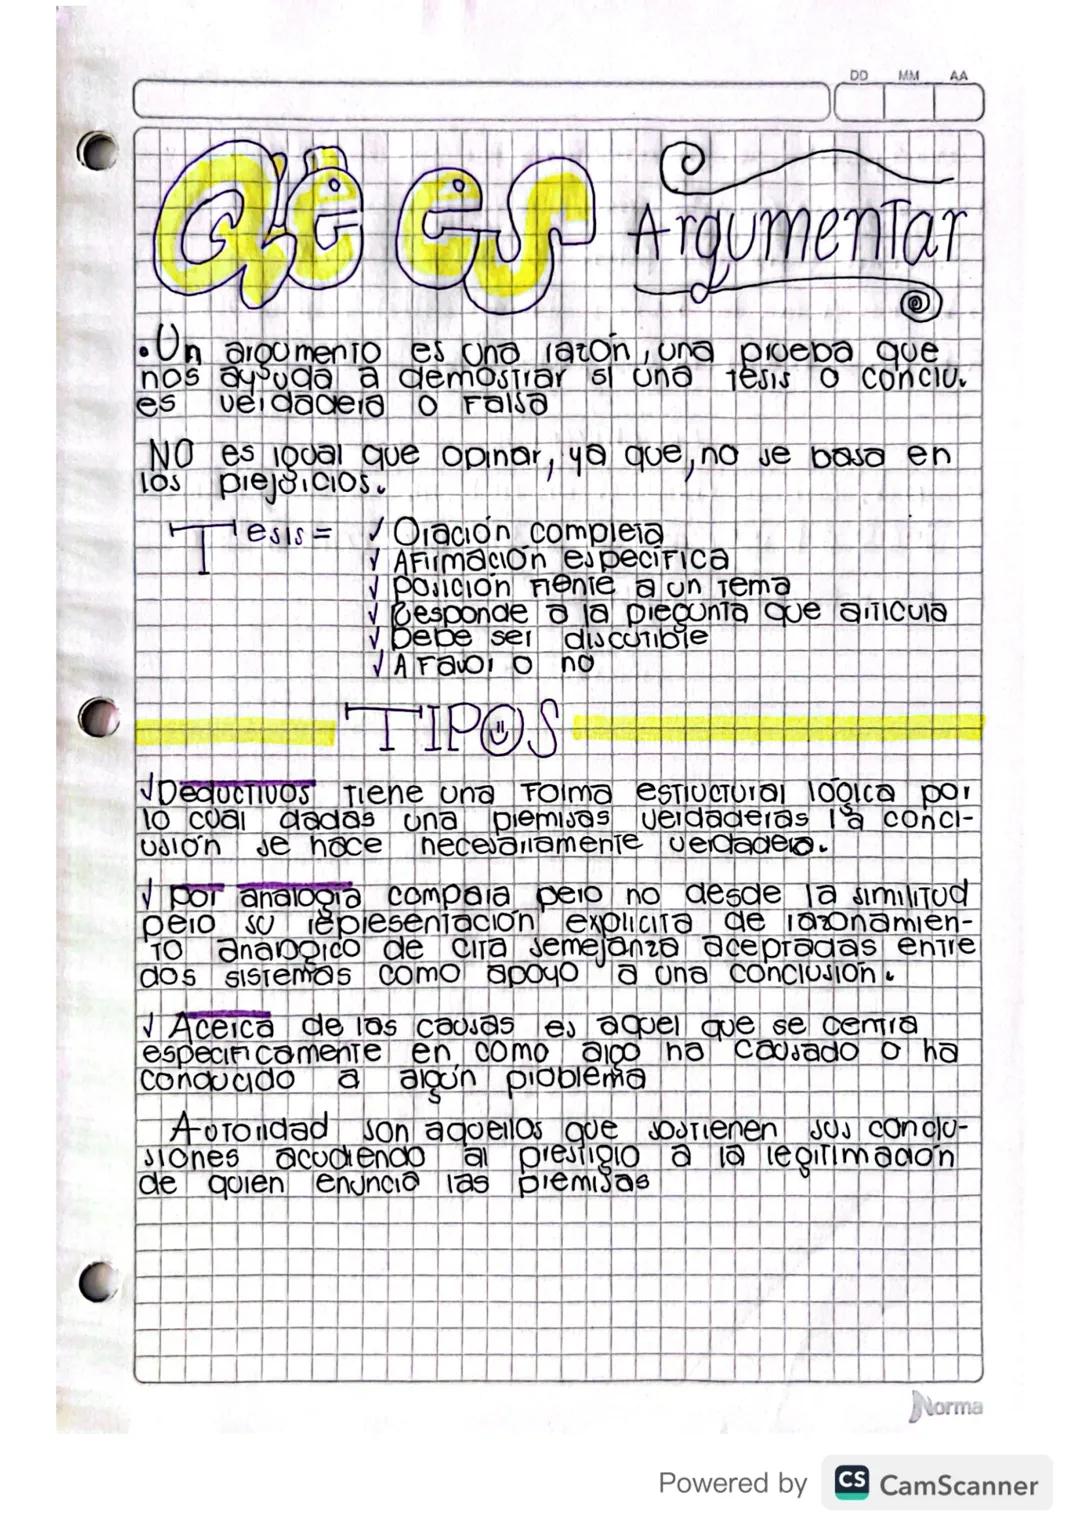 DD MM AA
Qué es Argumentar
• Un argumento es una razón, una prueba que
nos ayuda a demostrar si una tesis o conclu.
es verdadera o falsa
NO es igual que opinar, ya que, no se basa en
los prejuicios.
Tesis = ✓ Oración completa
✓ Afirmación especifica
✓ Posición frente a un tema
✓ Responde a la pregunta que articula
✓ Debe ser discutible
✓ A favor o no
TIPOS
✓ Deductivos tiene una forma estructural lógica por
lo cual dadas una premisas verdaderas la concl-
usión se hace necesariamente verdadera.
✓ Por analogia compara pero no desde la similitud
pero su representación explicita de razonamien-
to analogico de cita semejanza aceptadas entre
dos sistemas como apoyo a una conclusión.
✓ Acerca de las causas es aquel que se centra
especificamente en como algo ha causado o ha
conducido a algún problema
Autoridad son aquellos que sostienen sus conclu-
siones acudiendo al prestigio a la legitimación
de quien enuncia las premisas
Norma
Powered by CS CamScanner